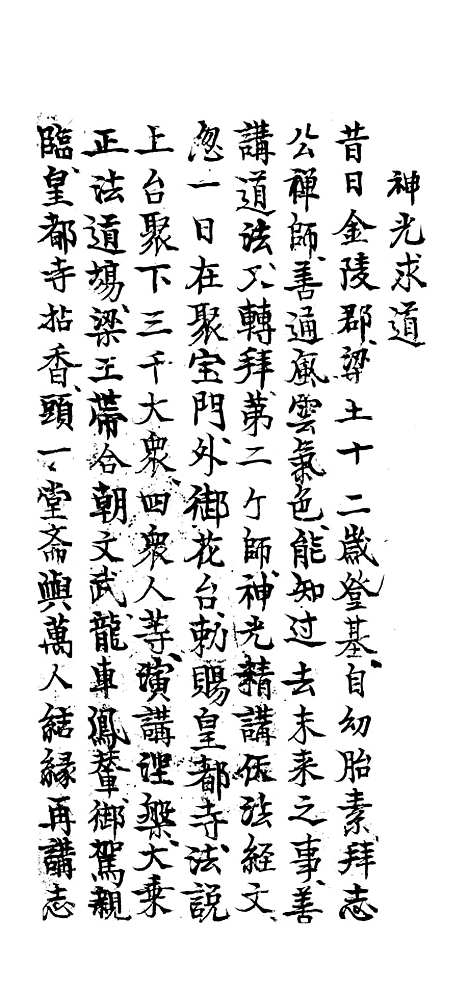 神光求道
昔日金陵郡梁王十二歲登基自幼胎素拜志
公禅師善通風雲氣色能知过去未来之事善
講道法又轉拜苐二个師神光精講伍法經文
忽一日在聚宝門外御花台勅賜皇都寺法説
上台聚下三千大衆四衆人等演講涅槃大乗
正法道場梁王帶合朝文武龍車鳳輦御駕親
臨皇都寺拈香頭一堂斋與萬人結縁再講志